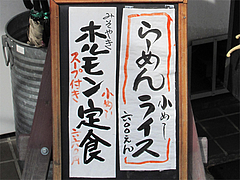 らーめんライス
小めし
六〇〇えん
みそやき
ホルモン定食
小めし
スープ付き